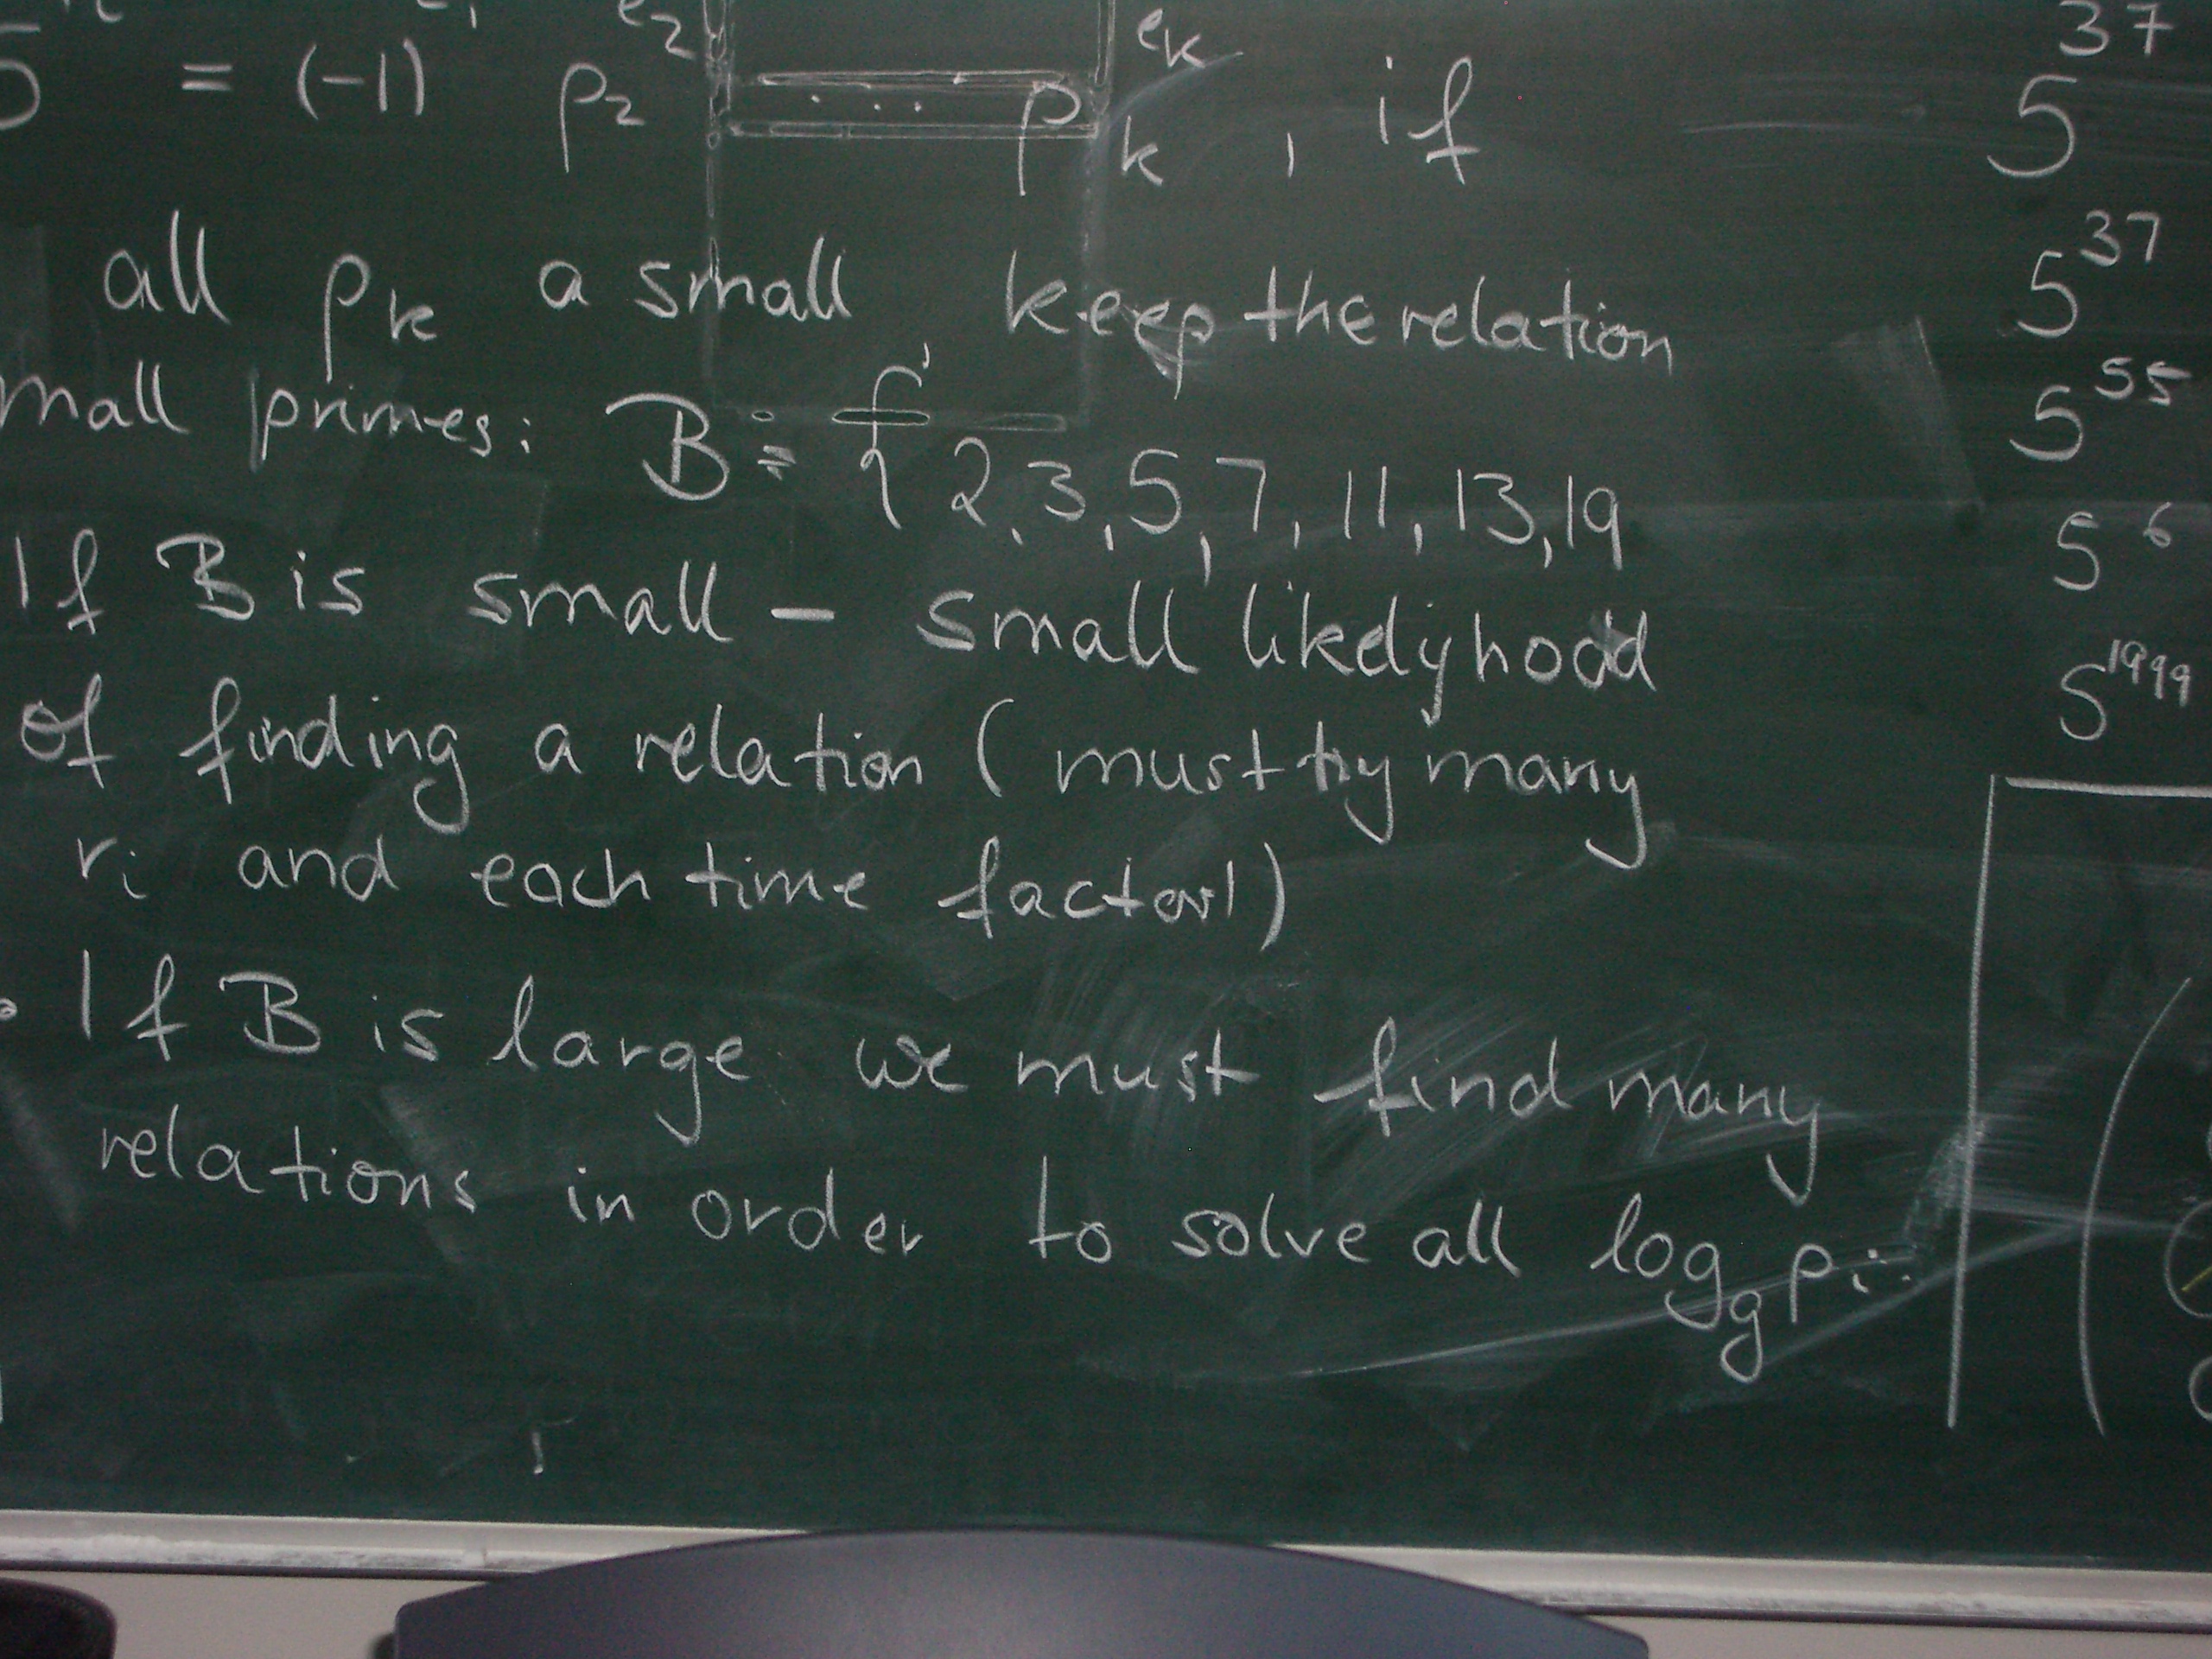 5 = (-1) p₂^e₂ ... p_k^e_k , if
all p_k a small keep the relation
mall primes: B = { 2, 3, 5, 7, 11, 13, 19
If B is small - small likelyhood
of finding a relation ( must try many
r_i and each time factor!)
• If B is large we must find many
relations in order to solve all log_g p_i
5^37
5^37
5^55
5^6
5^1999